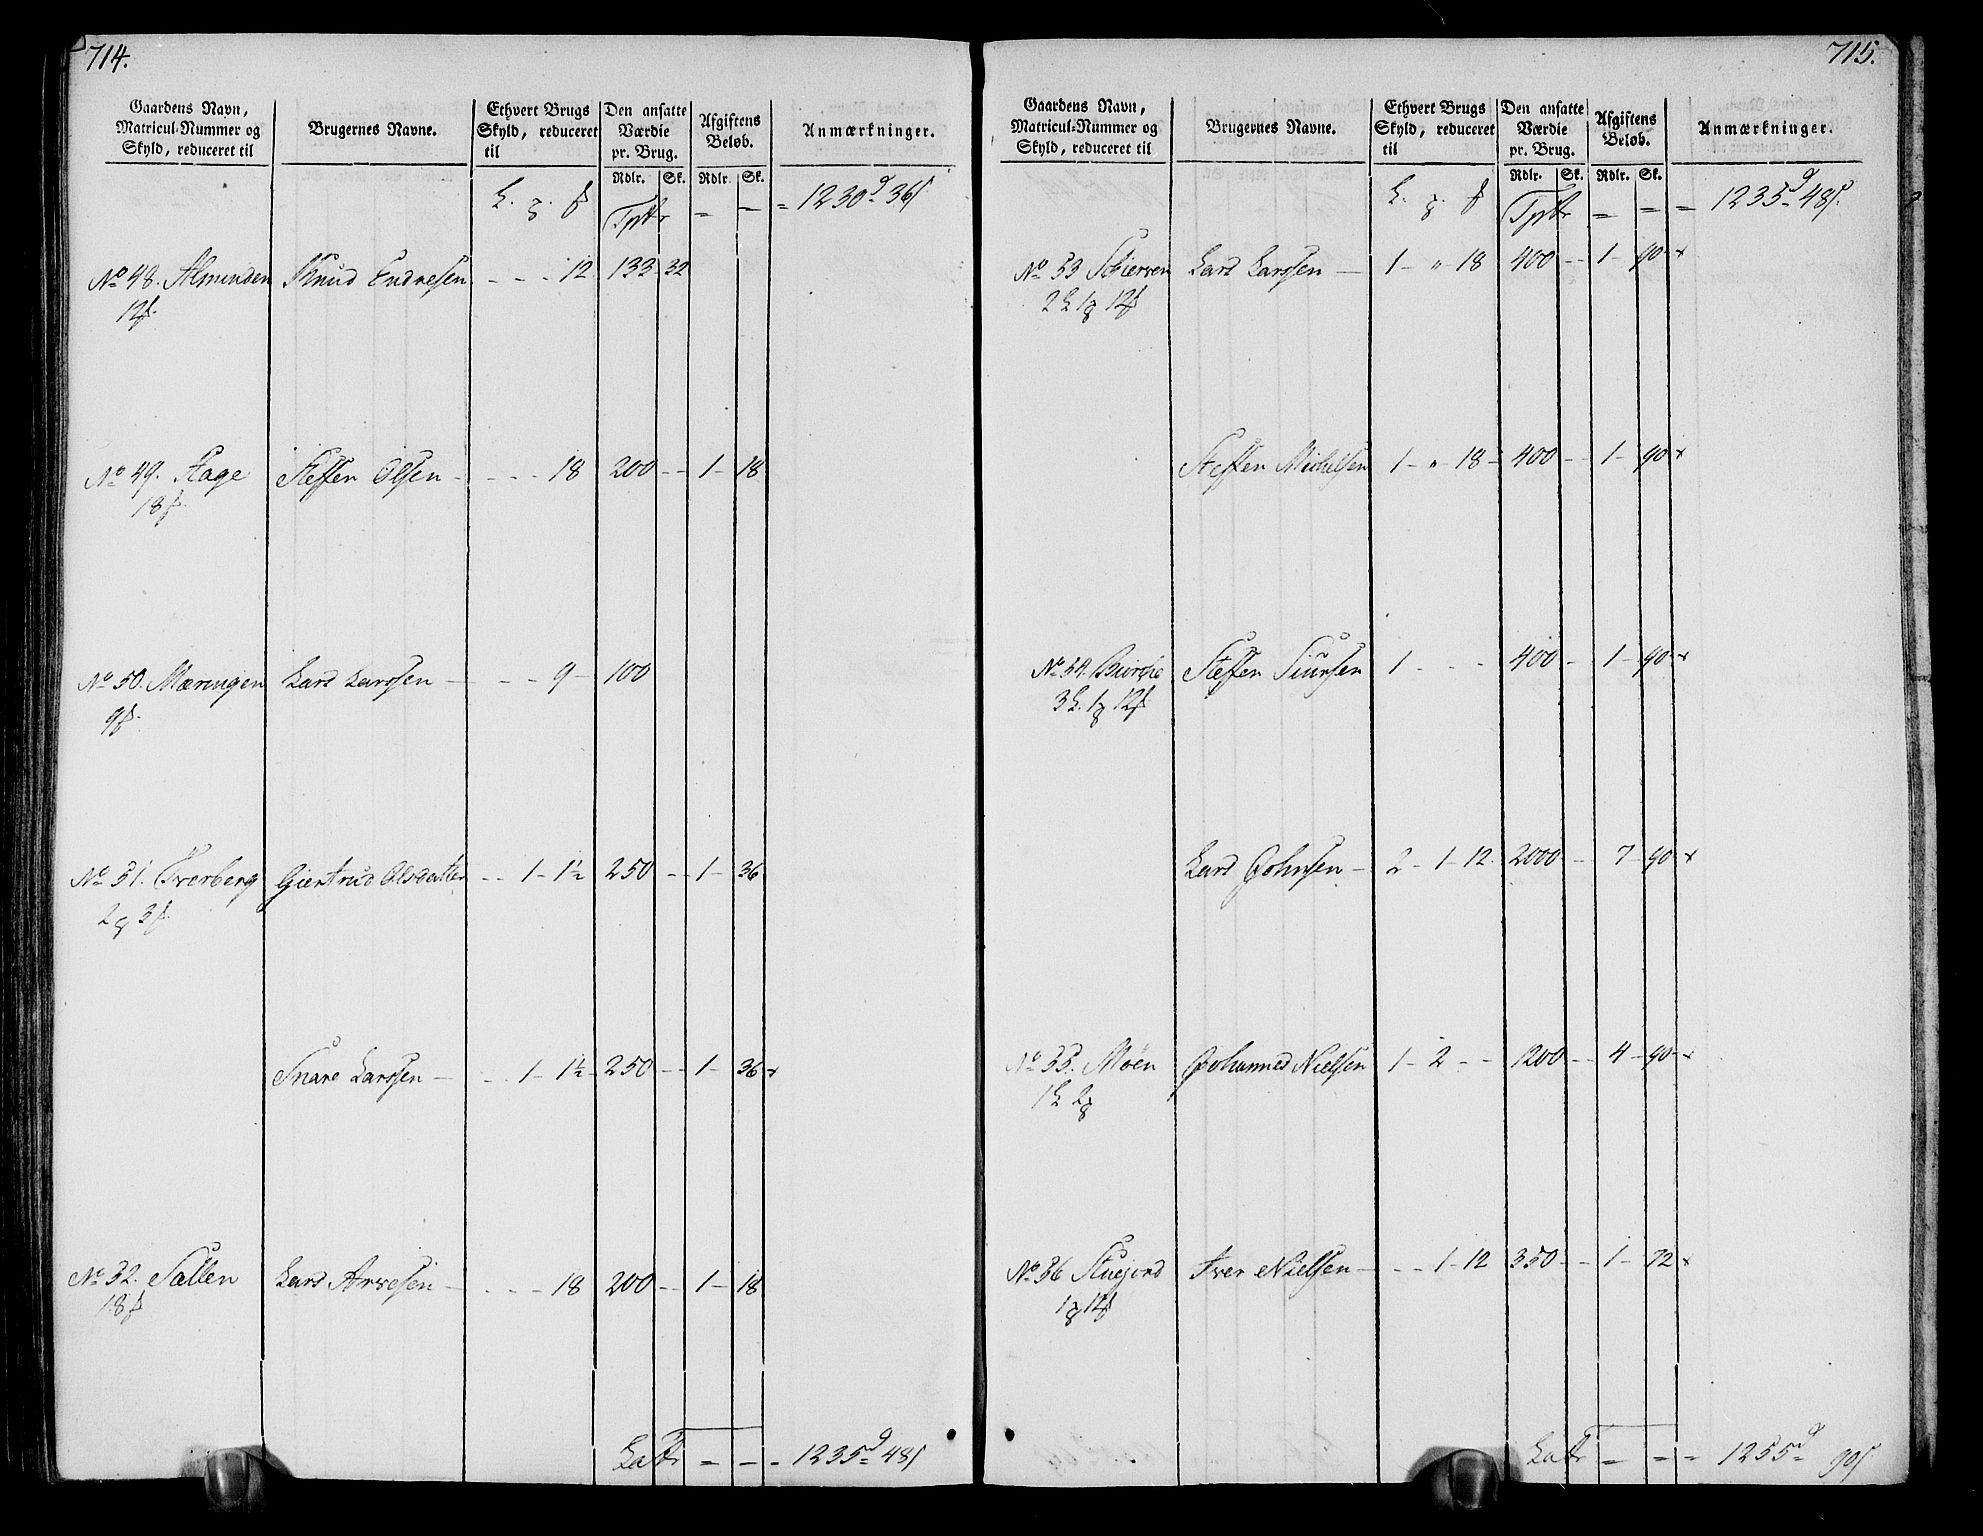 714.
Gaardens Navn, Matricul-Nummer og Skyld, reduceret til | Brugernes Navne. | Ethvert Brugs Skyld, reduceret til | Den ansatte Værdie pr. Brug. Rdlr. Sk. | Afgiftens Beløb. Rdlr. Sk. | Anmærkninger.
Tptr = = = 1230 d 36 s
No 48. Almunden Knud Endresen - - - 12 133 32
12
No 49. Hage Steffen Olsen - - - - 18 200 - - 1 - 18
18
No 50. Mæringen Lars Larssen - - - 9 - 100
9
No 51. Tverberg Giertrud Olsdatter - - 1 - 1½ 250 - - 1 - 36
2 3
Snare Larssen - - - 1 - 1½ 250 - - 1 - 36 x
No 52. Sallen Lars Arvesen - - - - 18 200 - - 1 - 18
18
Latr = = = 1235 d 48 s
715.
Gaardens Navn, Matricul-Nummer og Skyld, reduceret til | Brugernes Navne. | Ethvert Brugs Skyld, reduceret til | Den ansatte Værdie pr. Brug. Rdlr. Sk. | Afgiftens Beløb. Rdlr. Sk. | Anmærkninger.
Tptr = = = 1235 d 48 s
No 53 Schierven Lars Larssen - 1 - " 18 400 - - 1 - 90 x
2 1 12
Steffen Michelsen 1 - " 18 - 400 - - 1 - 90 x
No 54. Steffen Siursen 1 - - - 400 - 1 - 90 x
3 1 12
Lars Johnsen - 2 - 1 - 12. 2000 - 7 - 90 x
No 55. Møen Johannes Nielsen 1 - 2 - - 1200 - - 4 - 90 x
1 2
No 56 Stuejord Iver Nielsen - - - 1 - 12 350 - - 1 - 72 x
1 12
Latr = = = 1255 d 90 s